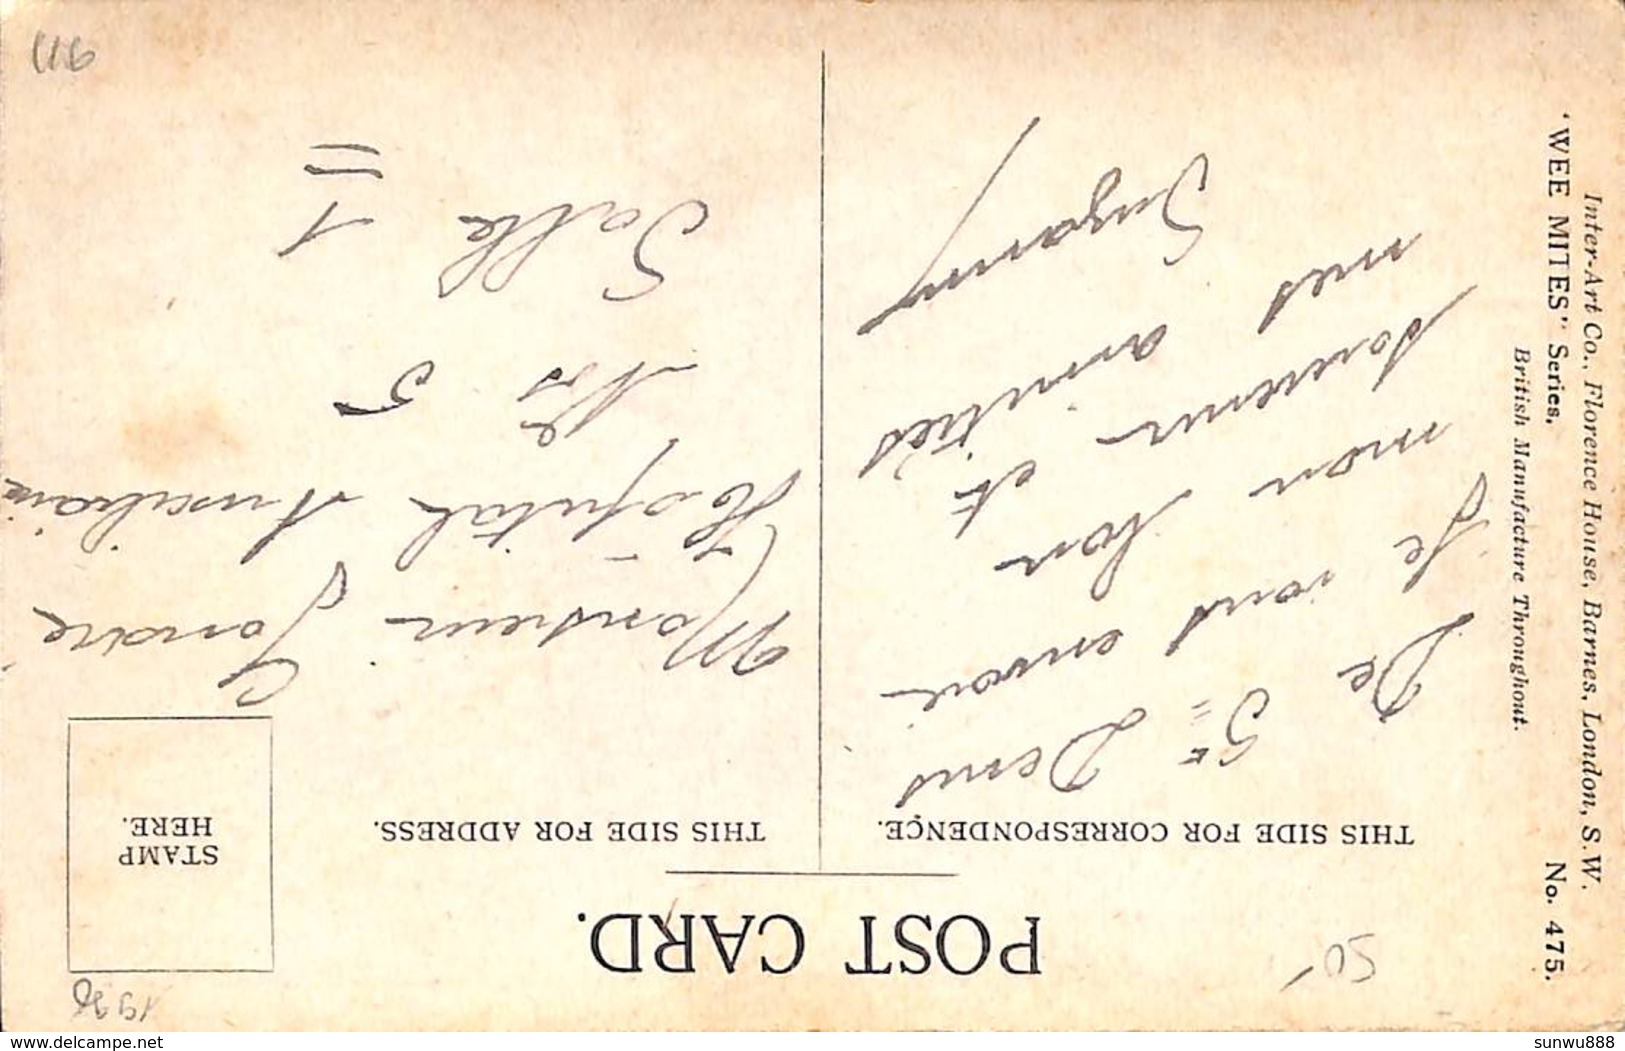 POST CARD.
THIS SIDE FOR CORRESPONDENCE.
THIS SIDE FOR ADDRESS.
STAMP
HERE.
De St Denis
Je vous envoie
mon bon
souvenir et
mes amitiés
Suzanny
Monsieur
Hopital Auxiliaire
No 5
Salle 1
Inter-Art Co., Florence House, Barnes, London, S.W.
"WEE MITES" Series. No. 475.
British Manufacture Throughout.
50
116
delcampe.net
sunwu888